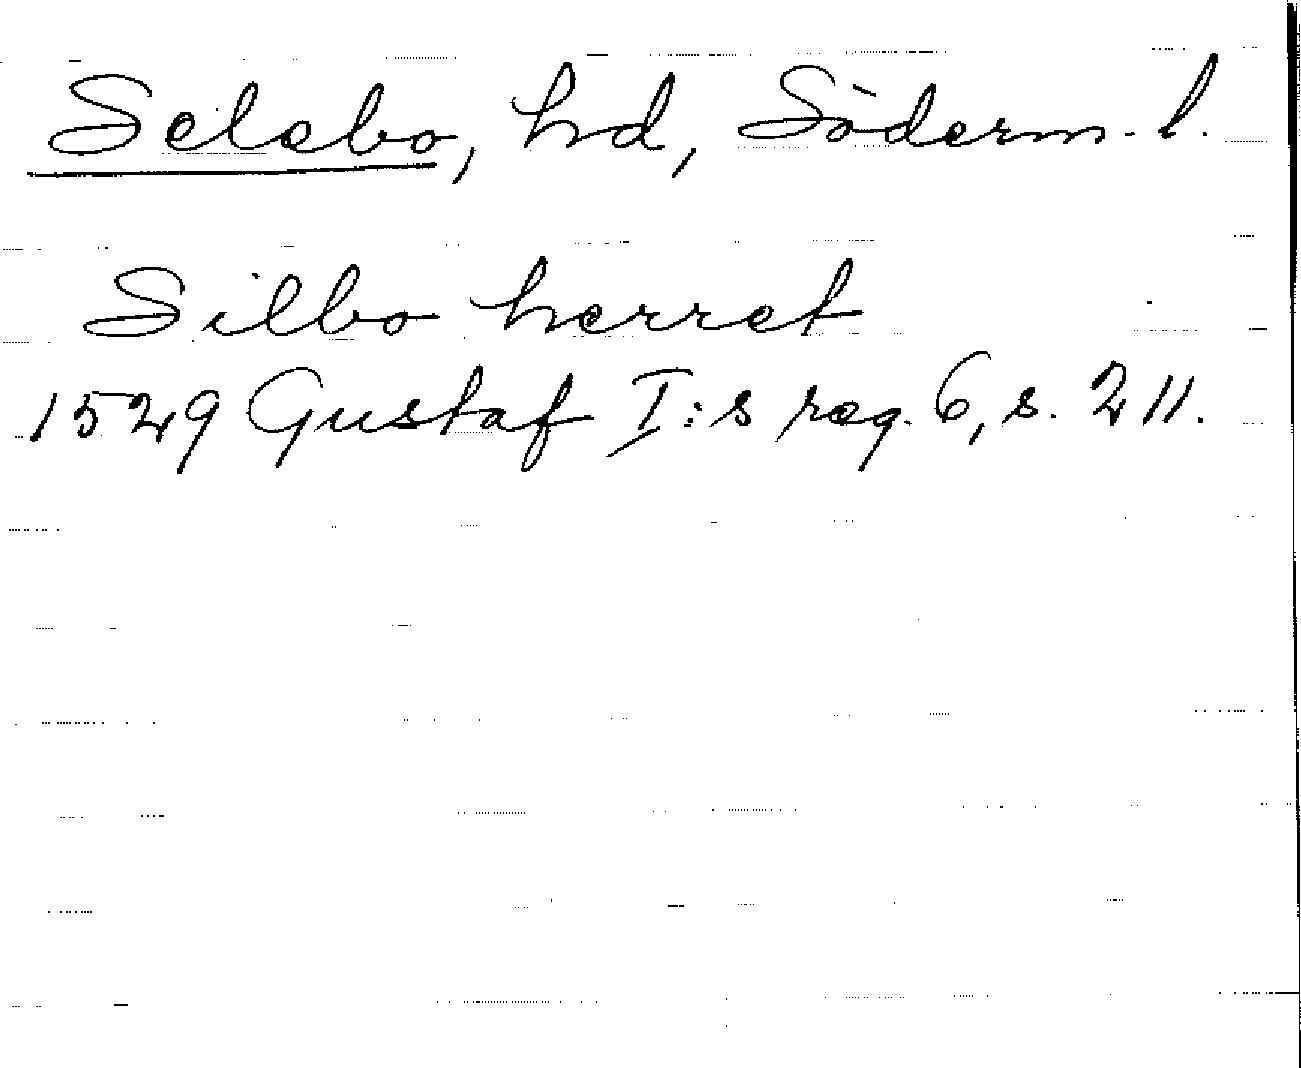 Selebo, hd, Söderm. l.
Silbo herret
1529 Gustaf I:s reg. 6, s. 211.